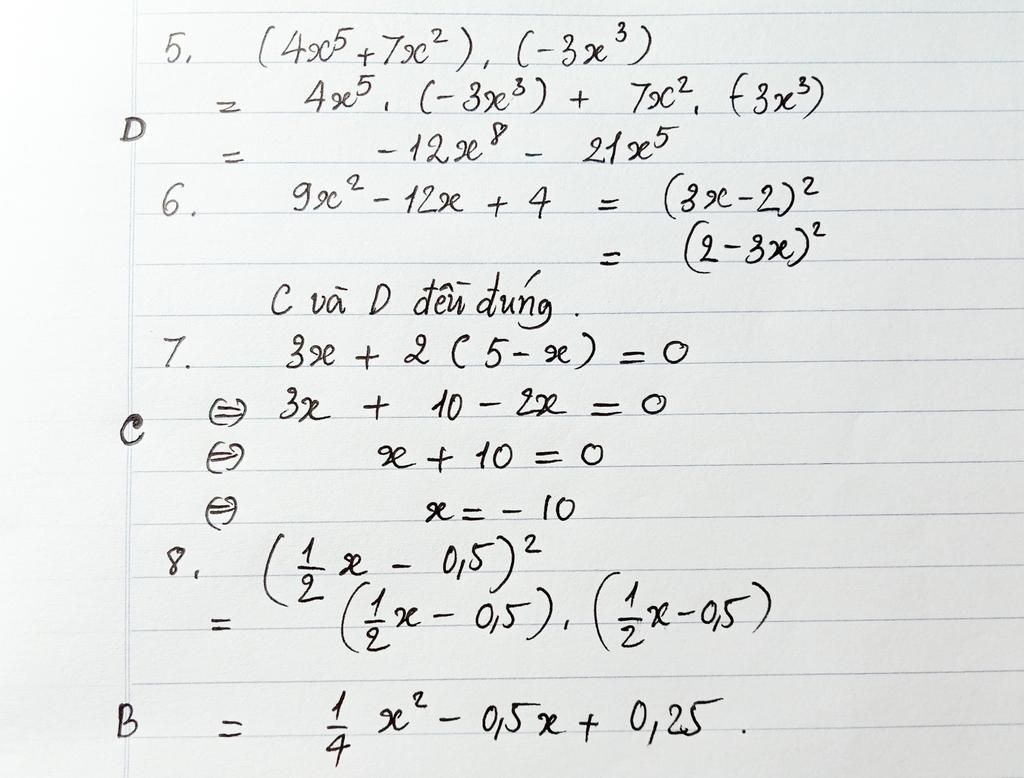 5. (4x⁵ + 7x²) . (-3x³)
= 4x⁵ . (-3x³) + 7x² . (-3x³)
D
= -12x⁸ - 21x⁵
6. 9x² - 12x + 4 = (3x - 2)²
= (2 - 3x)²
C và D đều đúng .
7. 3x + 2 ( 5 - x ) = 0
⇔ 3x + 10 - 2x = 0
C
⇔ x + 10 = 0
⇔ x = - 10
8. (1/2 x - 0,5)²
= (1/2 x - 0,5) . (1/2 x - 0,5)
B = 1/4 x² - 0,5x + 0,25 .